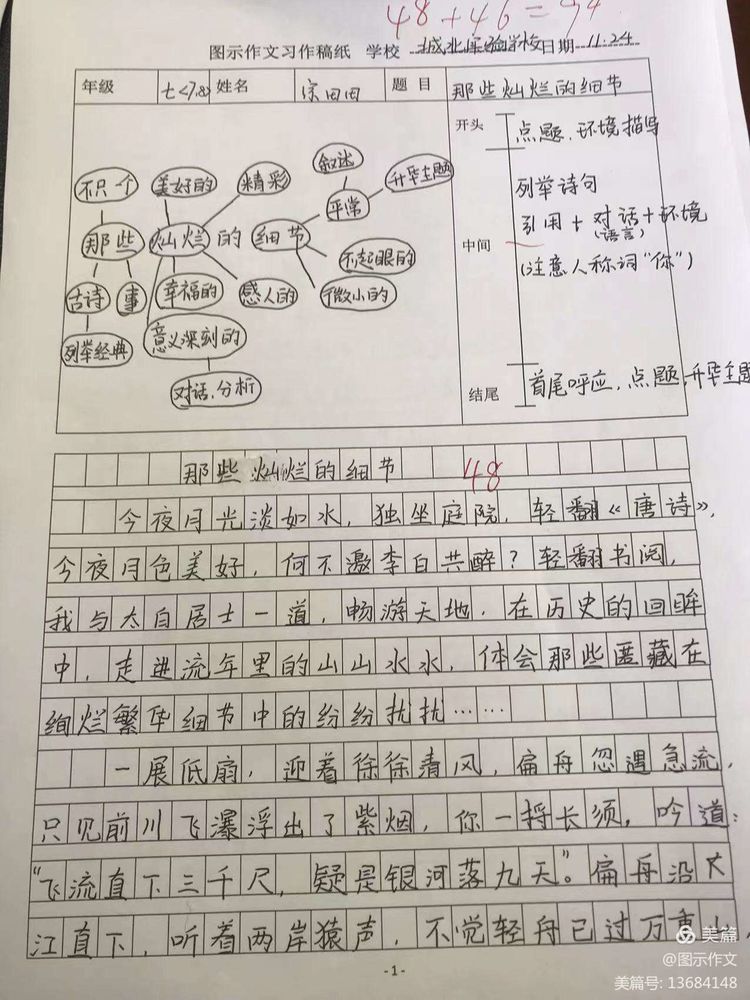 48+46=94
图示作文习作稿纸 学校 城北实验学校 日期 11.24
年级 七<7.8> 姓名 宗田田 题目 那些灿烂的细节
不只一个
美好的
精彩
叙述
升华主题
那些
灿烂
的
细节
平常
不起眼的
古诗
事
幸福的
感人的
微小的
列举经典
意义深刻的
对话、分析
开头 点题、环境描写
中间 列举诗句
引用+对话+环境
(语言)
(注意人称词“你”)
结尾 首尾呼应，点题，升华主题
那些灿烂的细节 48
今夜月光淡如水，独坐庭院，轻翻《唐诗》，
今夜月色美好，何不邀李白共醉？轻翻书阅，
我与太白居士一道，畅游天地．在历史的回眸
中，走进流年里的山山水水，体会那些匿藏在
绚烂繁华细节中的纷纷扰扰……
一展低扇，迎着徐徐清风，扁舟忽遇急流，
只见前川飞瀑浮出了紫烟，你一捋长须，吟道：
“飞流直下三千尺，疑是银河落九天”。扁舟沿大
江直下，听着两岸猿声，不觉轻舟已过万重山，
-1-
美篇
@图示作文
美篇号: 13684148